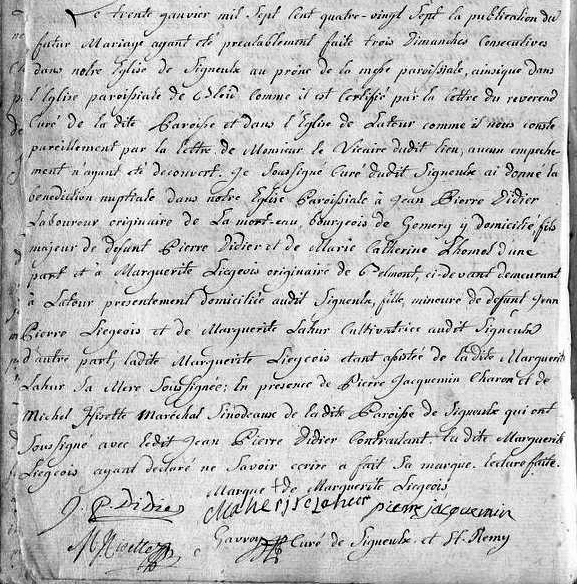 Le trente janvier mil sept cent quatre-vingt sept la publication du
futur Mariage ayant été préalablement faite trois Dimanches Consecutives
dans notre Eglise de Signeulx au prône de la messe paroissiale, ainsi que dans
l'Eglise paroissiale de comme il est Certifié par la lettre du reverend
Curé de la dite Paroisse et dans l'Eglise de Latour comme il nous conste
pareillement par la lettre de Monsieur le Vicaire dudit lieu, aucun empeche-
ment n'ayant été decouvert. Je Soussigné Curé dudit Signeulx ai donné la
benediction nuptiale dans notre Eglise Paroissiale à Jean Pierre Didier
Laboureur originaire de Lamorteau, bourgeois de Gomery y Domicilié, fils
majeur de defunt Pierre Didier et de Marie Catherine Lhomel d'une
part et à Marguerite Liegeois originaire de Belmont, ci-devant demeurant
à Latour presentement domiciliée audit Signeulx, fille mineure de defunt Jean
Pierre Liegeois et de Marguerite Lahur Cultivatrice audit Signeulx
d'autre part, ladite Marguerite Liegeois etant assistée de ladite Marguerite
Lahur Sa Mere Soussignée; En presence de Pierre Jacquemin Charon et de
Michel Hivette Maréchal Sinodeaux de ladite Paroisse de Signeulx qui ont
Soussigné avec ledit Jean Pierre Didier Contractant. Ladite Marguerite
Liegeois ayant declaré ne Savoir ecrire a fait Sa marque. Lecture faite.
Marque + de Marguerite Liegeois
J. P. Didier Lahur pierre jacquemin
M Hivette Gavroy Curé de Signeulx et St. Remy